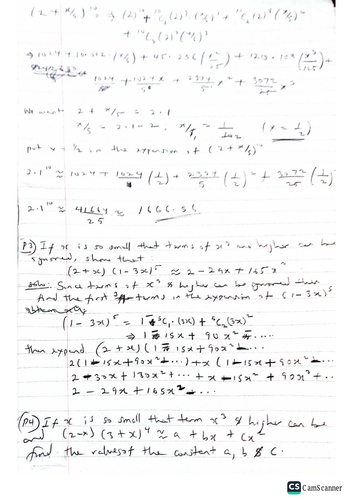 (2 + x/5)^10 ⇒ (2)^10 + ^10C_1 (2)^9 (x/5) + ^10C_2 (2)^8 (x/5)^2
+ ^10C_3 (2)^7 (x/5)^3
We want 2 + x/5 = 2.1
x/5 = 2.1 - 2 (x = 1/2)
put x = 1/2 in the expansion of (2 + x/5)^10
2.1^10 ≈ 1024 + 1024/5 (1/2) + (1/2)^2 + 3072/25 (1/2)^3
2.1^10 ≈ 41664/25 ≈ 1666.56
(P3) If x is so small that terms of x^3 and higher can be
ignored, show that
(2+x)(1-3x)^5 ≈ 2 - 29x + 165x^2
Soln: Since terms of x^3 & higher can be ignored then
And the first 3 terms in the expansion of (1-3x)^5
(1-3x)^5 = 1 - ^5C_1 . (3x) + ^5C_2 (3x)^2
⇒ 1 - 15x + 90x^2 - ....
then expand (2+x)(1 - 15x + 90x^2 - ...
2(1 - 15x + 90x^2 - ...) + x(1 - 15x + 90x^2 - ...
2 - 30x + 180x^2 + ... + x - 15x^2 + 90x^3 + ..
2 - 29x + 165x^2 - ...
(P4) If x is so small that term x^3 & higher can be
and (2-x)(3+x)^4 ≈ a + bx + cx^2
find the values of the constant a, b & c.
CS CamScanner